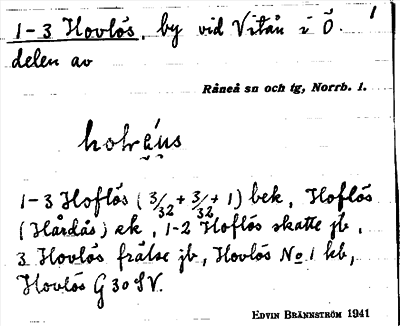 1
1-3 Hovlös, by vid Vitån i Ö.
delen av
Råneå sn och tg, Norrb. l.
1-3 Hoflös (3/32 + 3/32 + 1) bek, Hoflös
(Hårdås) ek, 1-2 Hoflös skatte jb,
3 Hovlös frälse jb, Hovlös No 1 kb,
Hovlös G 30 SV.
EDVIN BRÄNNSTRÖM 1941